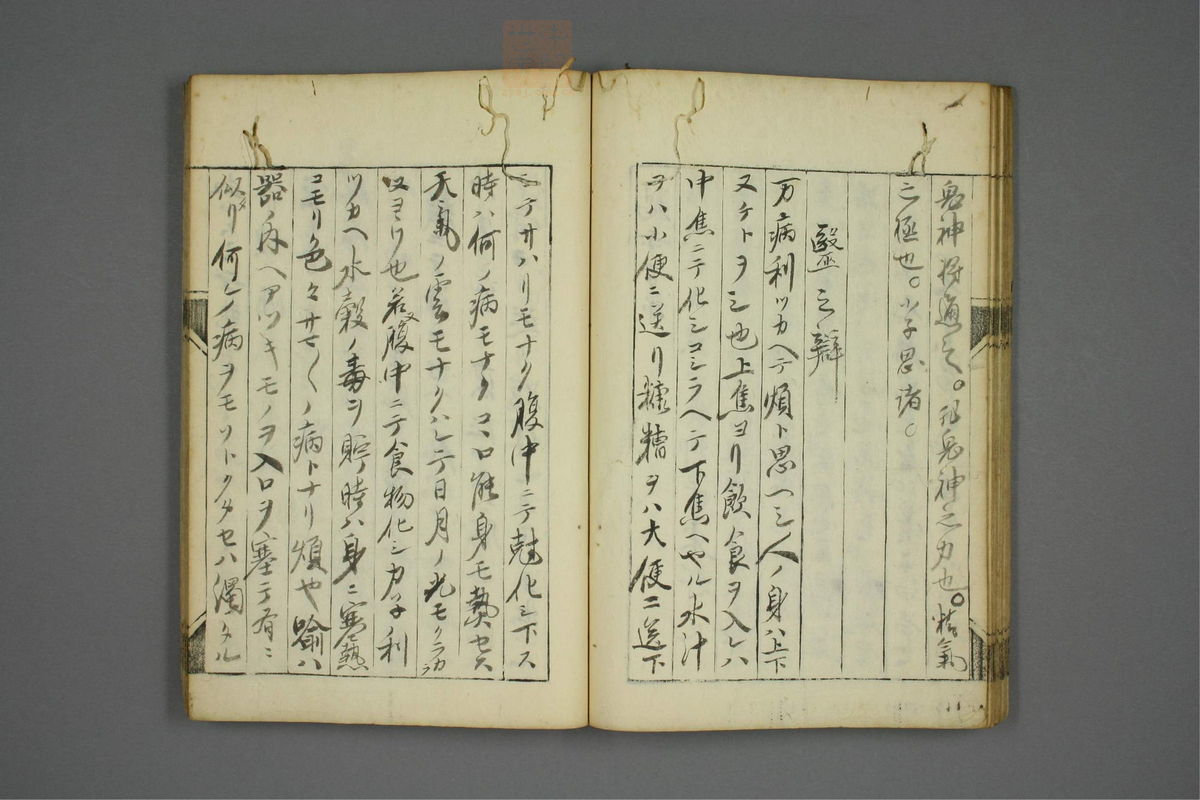 鬼神将通之。非鬼神之力也。精氣
之極也。小子思諸。
醫之辯
万病利ツカヘテ煩ト思ヘシ人ノ身ハ上下
ヌケトヲシ也上焦ヨリ飲食ヲ入レハ
中焦ニテ化シコシラヘテ下焦ヘヤル水汁
ヲハ小便ニ送リ糠糟ヲハ大便ニ送下
シテサハリモナク腹中ニテ尅化シ下ス
時ハ何ノ病モナクコヽロ能身モ熱セス
天氣ノ雲モナクハレテ日月ノ光モクラカラ
ヌヨリ也若腹中ニテ食物化シカ子利
ツカヘ水穀ノ毒ヲ貯ル時ハ身ニ寒熱
コモリ色々サマ〱ノ病トナリ煩や喩ハ
器ノ内ヘアツキモノヲ入口ヲ塞テ有ニ
似タリ何レノ病ヲモツトクタセハ濁タル